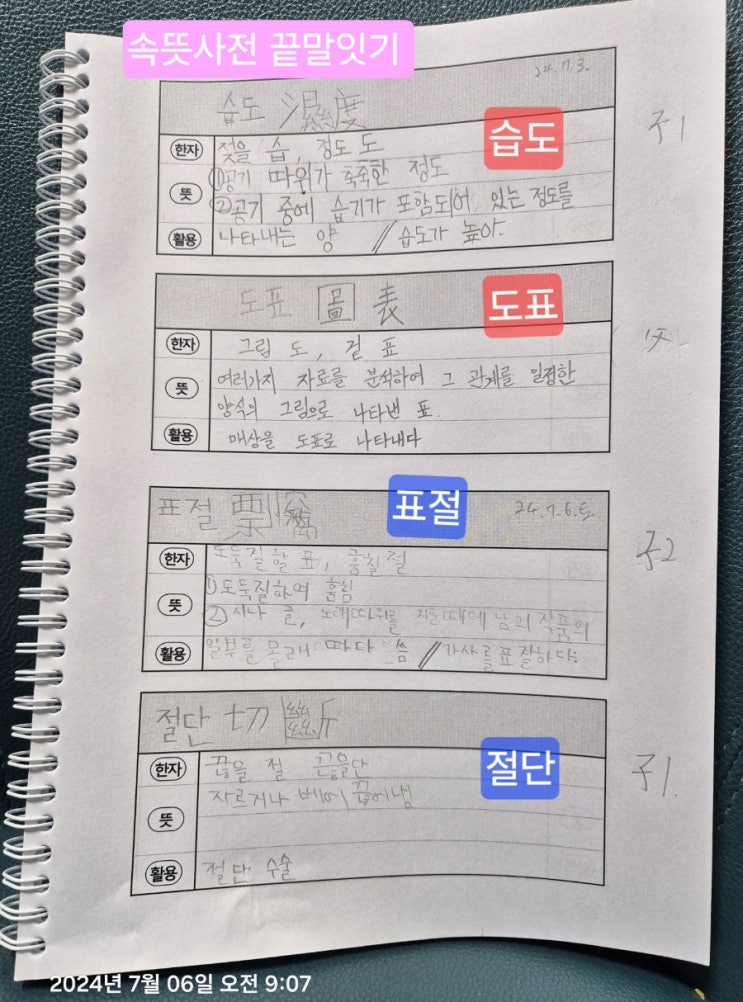 속뜻사전 끝말잇기
24.7.3.
습도 濕度
습도
주1
한자 젖을 습, 정도 도
뜻 ①공기 따위가 축축한 정도
②공기 중에 습기가 포함되어 있는 정도를
활용 나타내는 양 // 습도가 높아.
도표 圖表
도표
한자 그림 도, 겉 표
뜻 여러가지 자료를 분석하여 그 관계를 일정한
양식의 그림으로 나타낸 표.
활용 매상을 도표로 나타내다.
표절 剽竊
표절
24.7.6.토
주2
한자 도둑질할 표, 훔칠 절
뜻 ①도둑질하여 훔침
②시나 글, 노래따위를 지을때에 남의 작품의
활용 일부를 몰래 따다 씀 // 가사를 표절하다.
절단 切斷
절단
주1.
한자 끊을 절 끊을단
뜻 자르거나 베어 끊어냄
활용 절단 수술
2024년 7월 06일 오전 9:07